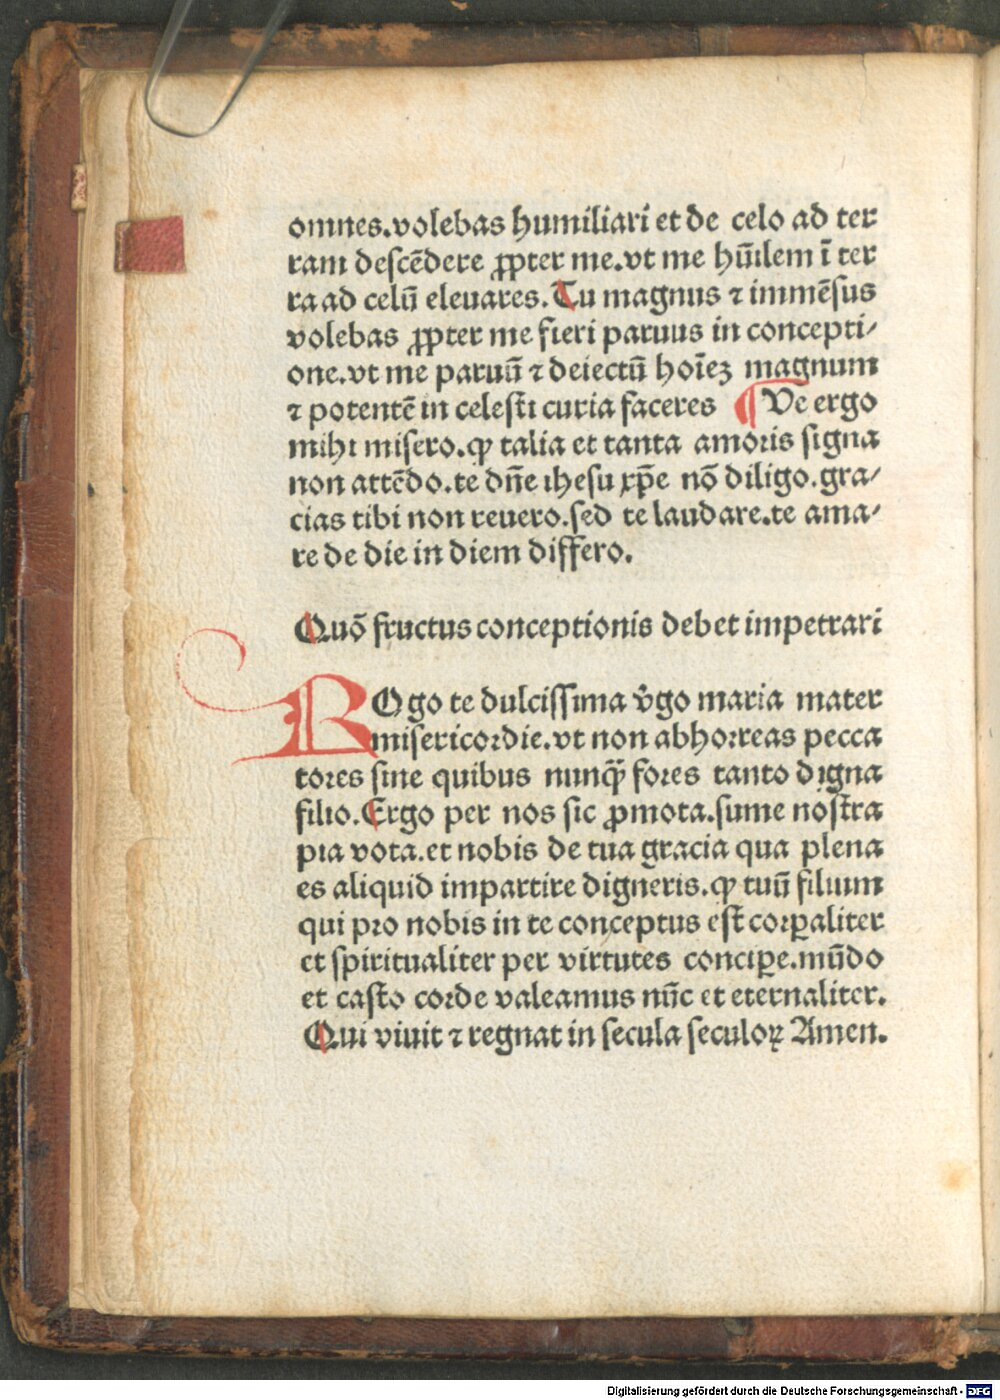 omnes.volebas humiliari et de celo ad ter
ram descēdere ꝓpter me.vt me hūilem ī ter
ra ad celū eleuares.Tu magnus ⁊ immēsus
volebas ꝓpter me fieri paruus in concepti⸗
one.vt me paruū ⁊ deiectū hoīez magnum
⁊ potentē in celesti curia faceres ¶ Ve ergo
mihi misero.ꝙ talia et tanta amoris signa
non attēdo.te dn̄e ihesu xp̄e nō diligo.gra⸗
cias tibi non reuero.sed te laudare.te ama⸗
re de die in diem differo.
Quō fructus conceptionis debet impetrari
ROgo te dulcissima v̄go maria mater
misericordie.vt non abhorreas pecca
tores sine quibus nunqꝫ̄ fores tanto digna
filio.Ergo per nos sic ꝓmota.sume nostra
pia vota.et nobis de tua gracia qua plena
es aliquid impartire digneris.ꝙ tuū filium
qui pro nobis in te conceptus est corꝑaliter
et spiritualiter per virtutes conciꝑe.mūdo
et casto corde valeamus nūc et eternaliter.
Qui viuit ⁊ regnat in secula seculoꝝ Amen.
Digitalisierung gefördert durch die Deutsche Forschungsgemeinschaft - DFG